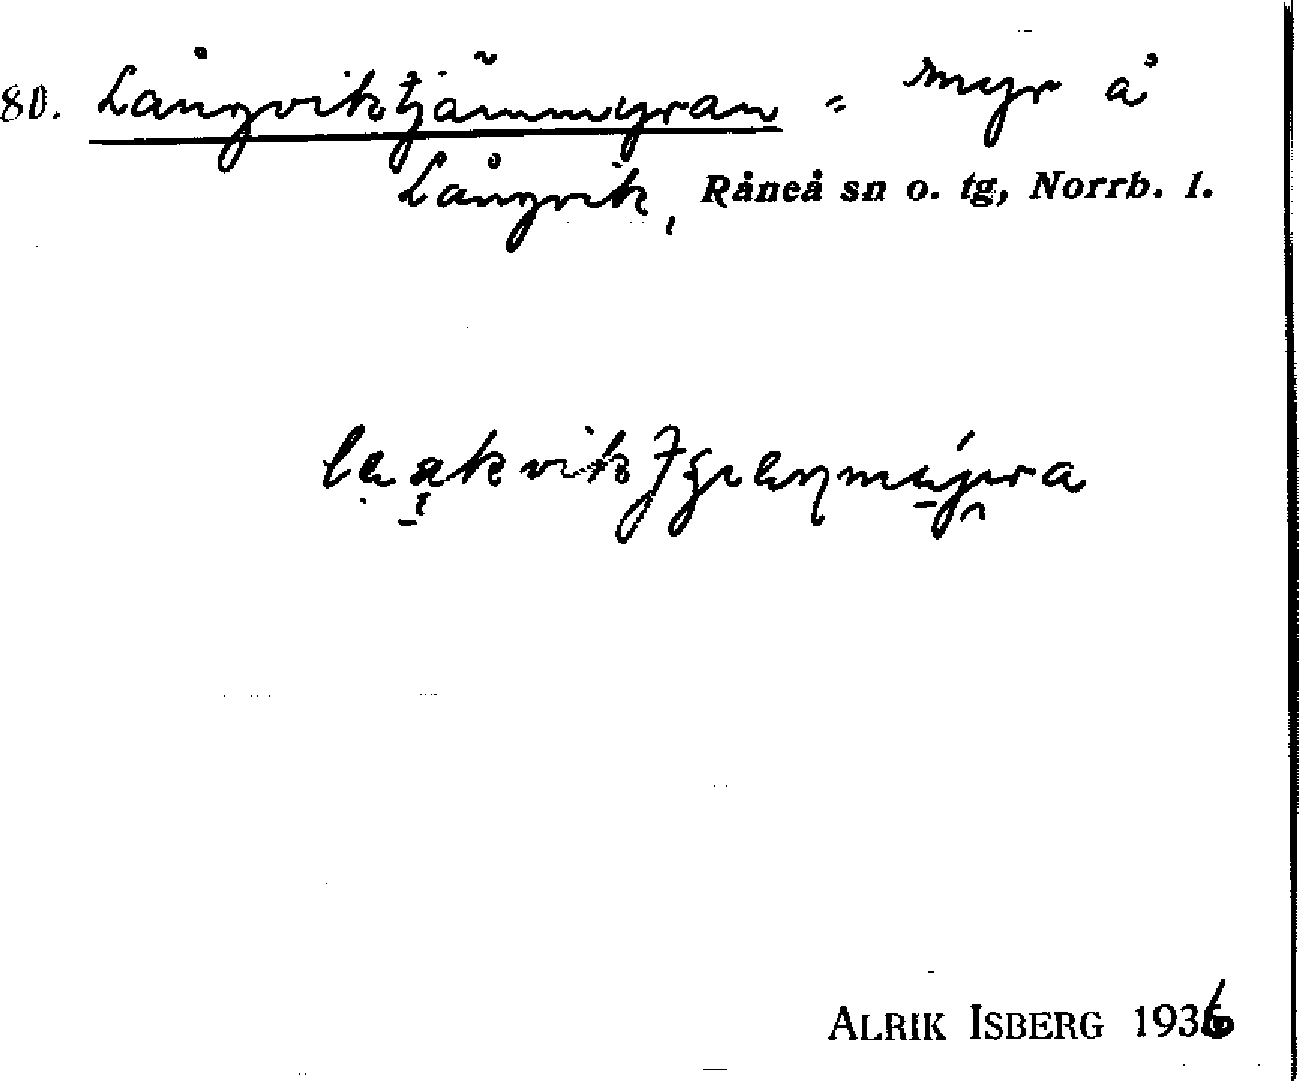 80. Långviktjämmyran = myr å
Långvik, Råneå sn o. tg, Norrb. l.
ALRIK ISBERG 1936